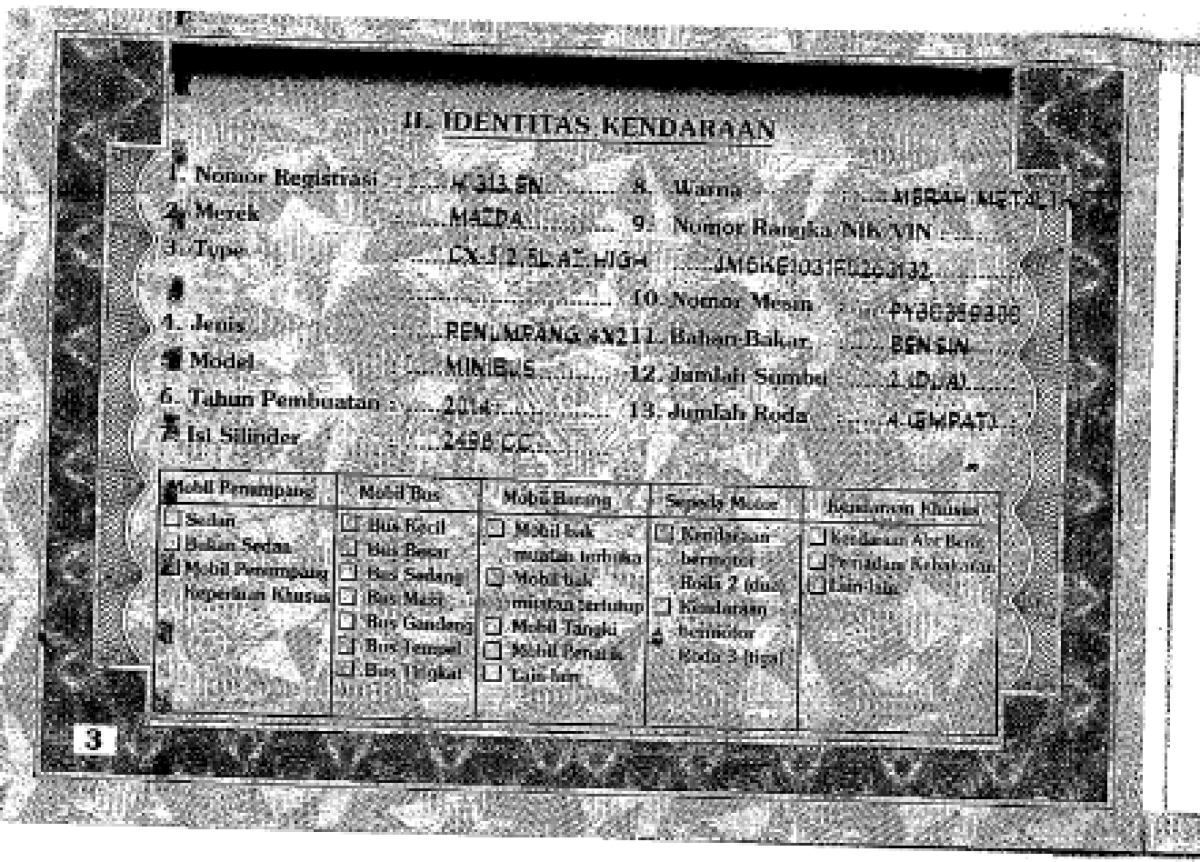 II. IDENTITAS KENDARAAN
1. Nomor Registrasi : H 313 BN
2. Merek : MAZDA
3. Type : CX-5 2.5L AT HIGH
4. Jenis : PENUMPANG 4X2
Model : MINIBUS
6. Tahun Pembuatan : 2014
7. Isi Silinder : 2498 CC
8. Warna : MERAH METALIK
9. Nomor Rangka/NIK/VIN :
10. Nomor Mesin :
11. Bahan Bakar : BENSIN
12. Jumlah Sumbu : 2 (DUA)
13. Jumlah Roda : 4 (EMPAT)
Mobil Penumpang
Sedan
Bukan Sedan
Mobil Penumpang
Keperluan Khusus
Mobil Bus
Bus Kecil
Bus Besar
Bus Sedang
Bus Maxi
Bus Gandeng
Bus Tempel
Bus Tingkat
Mobil Barang
Mobil bak
muatan terbuka
Mobil bak
muatan tertutup
Mobil Tangki
Mobil Penarik
Lain-lain
Sepeda Motor
Kendaraan
bermotor
Roda 2 (dua)
Kendaraan
bermotor
Roda 3 (tiga)
Kendaraan Khusus
Kendaraan Alat Berat
Pemadam Kebakaran
Lain-lain
3